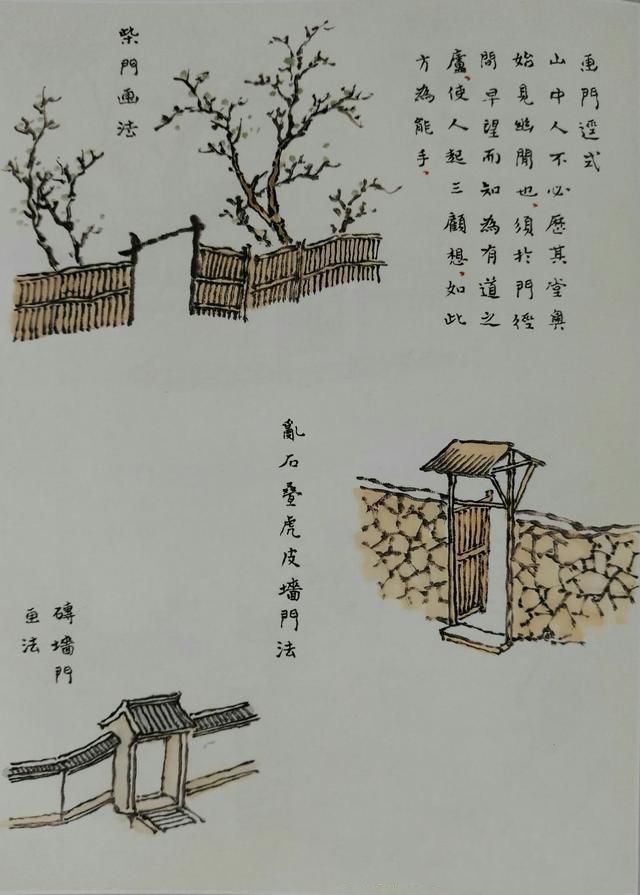 画門逕式
山中人不必歷其堂奧
始見幽閒也.須於門徑
間早望而知為有道之
廬.使人起三顧想.如此
方為能手.
柴門画法
亂石疊虎皮墻門法
磚墻門
画法